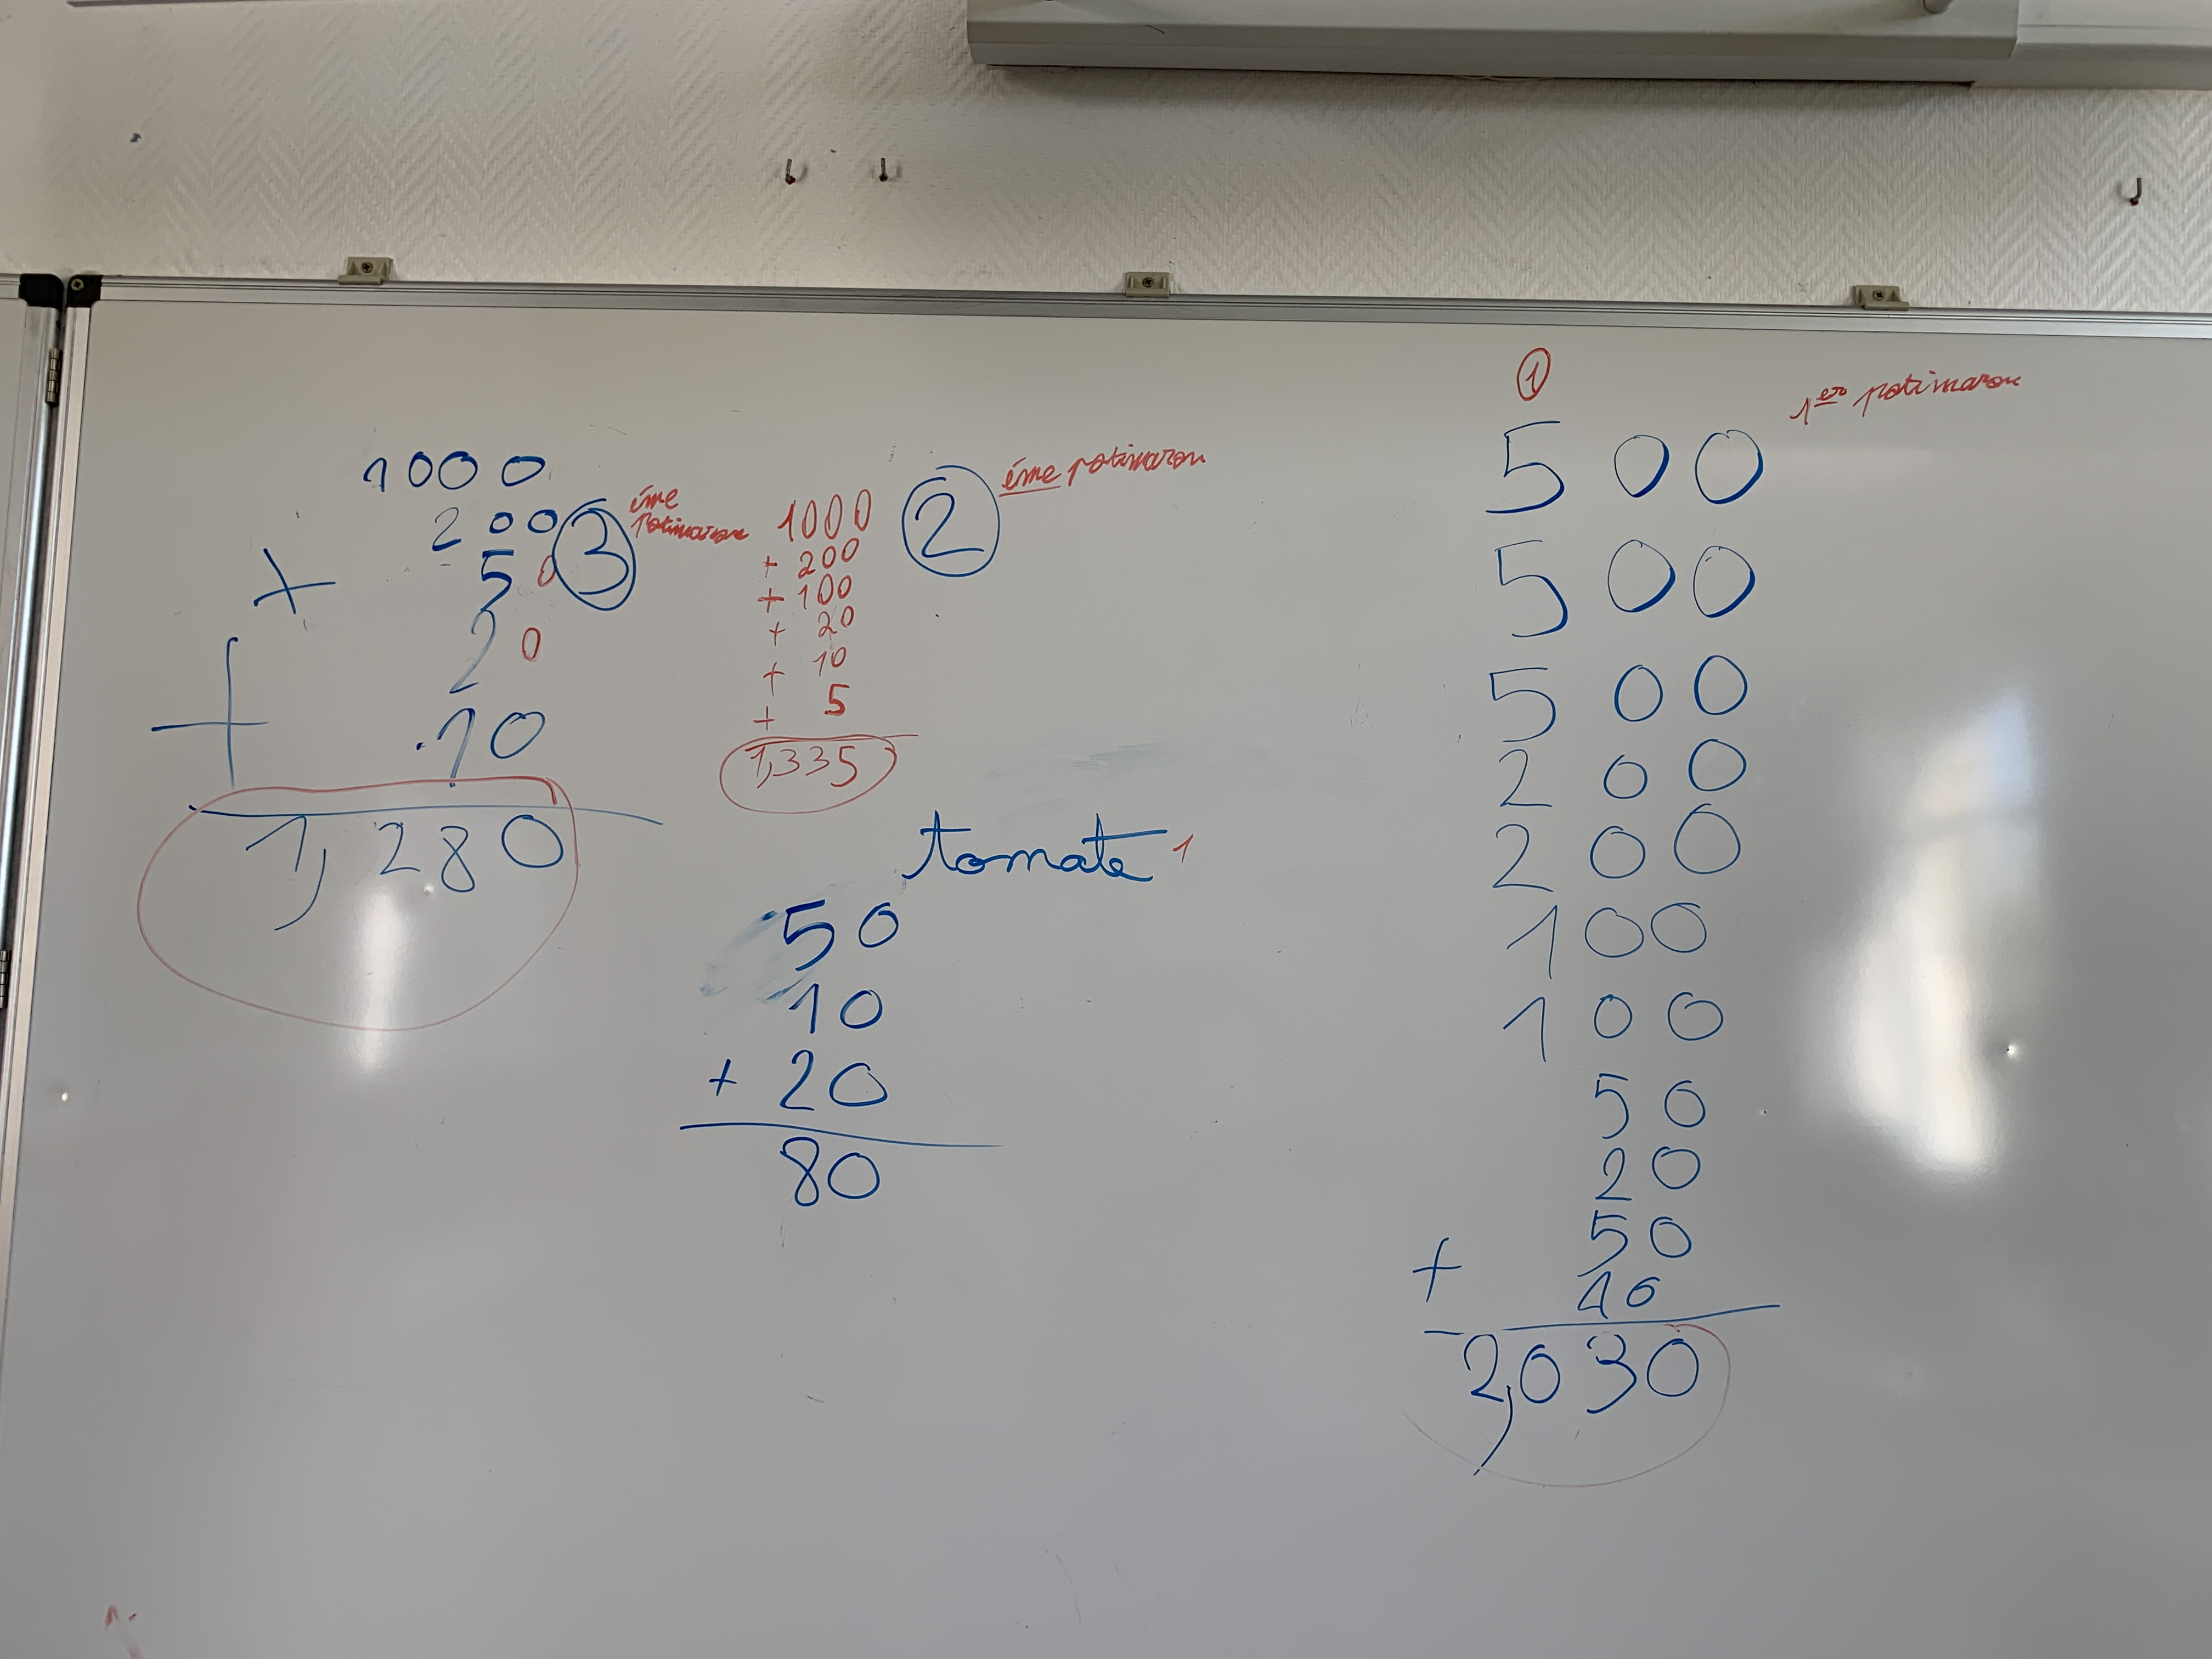 1000
200
+ 50
20
+ 10
1,280
3 ème
potimaron
1000
+ 200
+ 100
+ 20
+ 10
+ 5
1,335
2 ème potimaron
tomate 1
50
10
+ 20
80
1
1er potimaron
500
500
500
200
200
100
100
50
20
50
+ 10
2,030